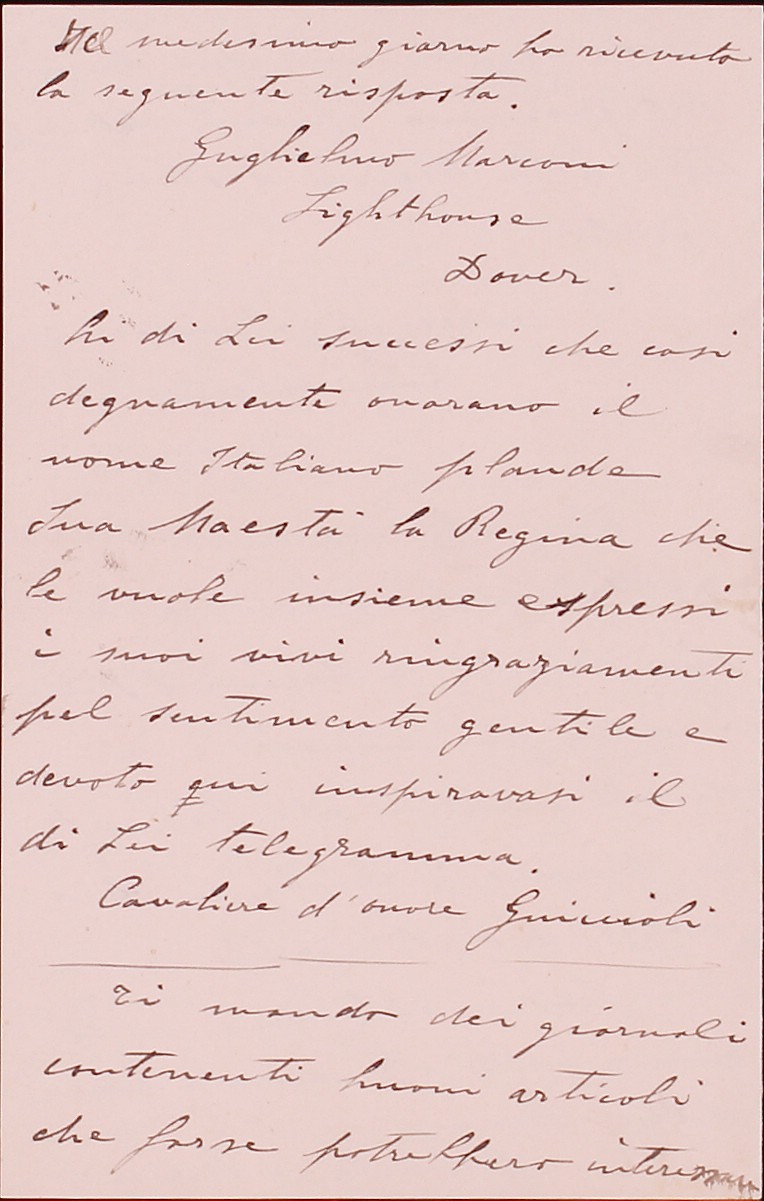 Nel medesimo giorno ho ricevuto
la seguente risposta.
Guglielmo Marconi
Lighthouse
Dover.
Ai di Lei successi che così
degnamente onorano il
nome Italiano plaude
Sua Maestà la Regina che
le vuole insieme espressi
i suoi vivi ringraziamenti
pel sentimento gentile e
devoto qui inspiravasi il
di Lei telegramma.
Cavaliere d'onore Guiccioli
Ti mando dei giornali
contenenti buoni articoli
che forse potrebbero interessare